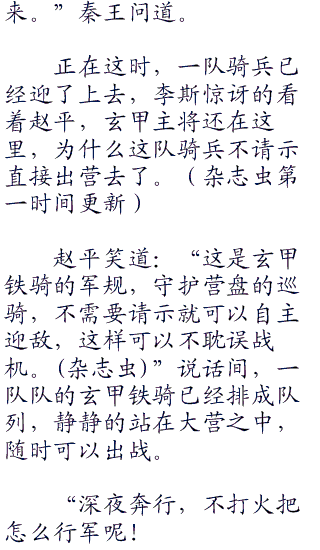 来。”秦王问道。
正在这时，一队骑兵已
经迎了上去，李斯惊讶的看
着赵平，玄甲主将还在这
里，为什么这队骑兵不请示
直接出营去了。（杂志虫第
一时间更新）
赵平笑道：“这是玄甲
铁骑的军规，守护营盘的巡
骑，不需要请示就可以自主
迎敌，这样可以不耽误战
机。(杂志虫)”说话间，一
队队的玄甲铁骑已经排成队
列，静静的站在大营之中，
随时可以出战。
“深夜奔行，不打火把
怎么行军呢！